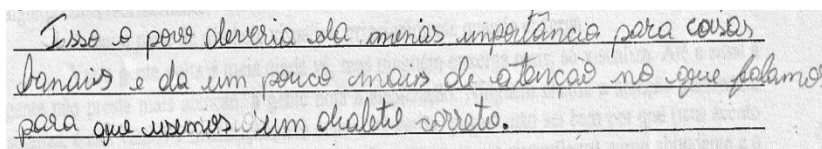 Isso o povo deveria da menas importância para coisas
banais e da um pouco mais de atenção no que falamos
para que usemos um dialeto correto.